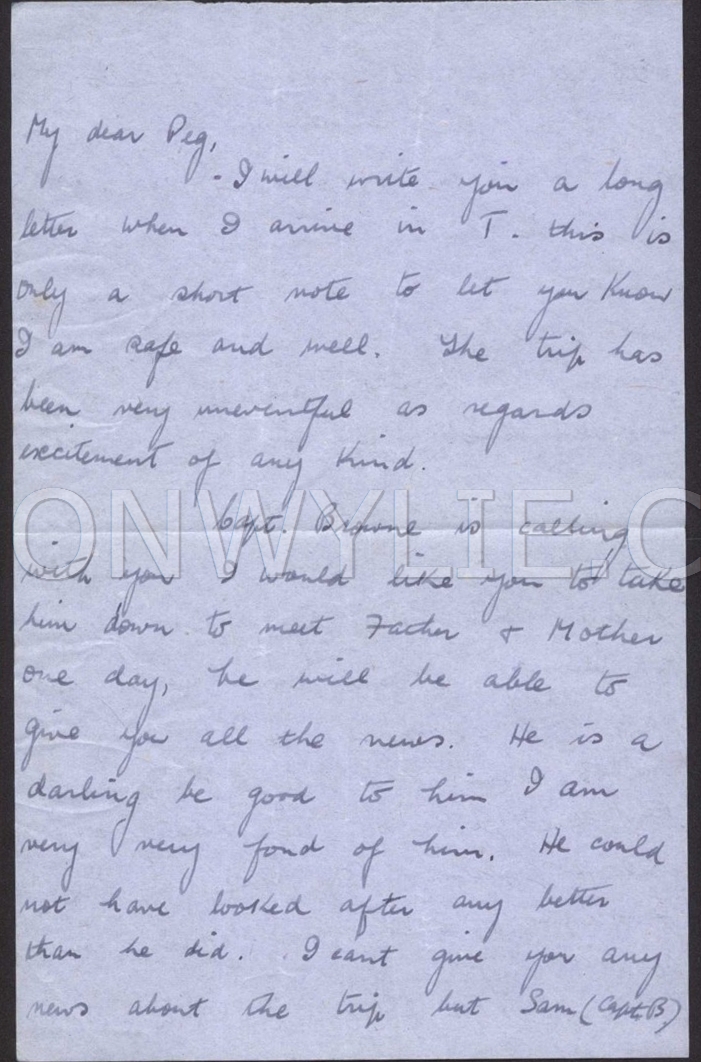 My dear Peg,
- I will write you a long
letter when I arrive in T. this is
only a short note to let you know
I am safe and well. The trip has
been very uneventful as regards
excitement of any kind.
ONWYLIE.C
Capt. Browne is calling
with you I would like you to take
him down to meet Father & Mother
one day, he will be able to
give you all the news. He is a
darling be good to him I am
very very fond of him. He could
not have looked after any better
than he did. I cant give you any
news about the trip but Sam (Capt. B)